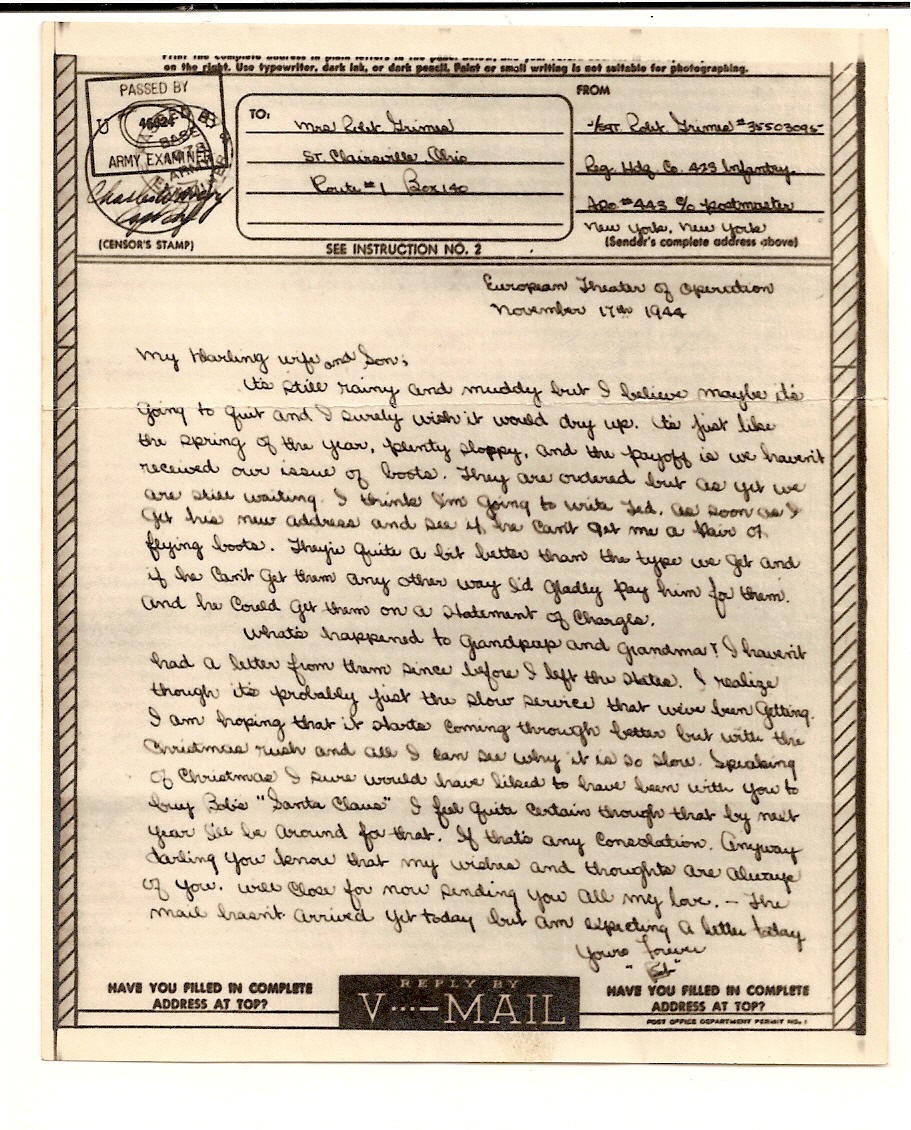 Print the complete address in plain letters in the panel below, and your return address in the space provided
on the right. Use typewriter, dark ink, or dark pencil. Faint or small writing is not suitable for photographing.
PASSED BY
U
46924
ARMY EXAMINER
BASE
ARMY
(CENSOR'S STAMP)
TO:
Mrs Robt. Grimes
St. Clairsville Ohio
Route #1 Box 140
SEE INSTRUCTION NO. 2
FROM
Robt. Grimes #35503095
Reg. Hdq. Co. 423 Infantry
Apo #443 c/o postmaster
New York, New York
(Sender's complete address above)
European Theater of Operation
November 17th 1944
My Darling wife and Son;
It's still rainy and muddy but I believe maybe it's
going to quit and I surely wish it would dry up. It's just like
the spring of the year, plenty sloppy, and the payoff is we haven't
received our issue of boots. They are ordered but as yet we
are still waiting. I think I'm going to write Ted, as soon as I
get his new address and see if he can't get me a pair of
flying boots. They're quite a bit better than the type we get and
if he can't get them any other way I'd gladly pay him for them.
And he could get them on a statement of charges.
What's happened to Grandpap and Grandma? I haven't
had a letter from them since before I left the states. I realize
though it's probably just the slow service that we've been getting.
I am hoping that it starts coming through better but with the
Christmas rush and all I can see why it is so slow. Speaking
of Christmas I sure would have liked to have been with you to
buy Bob's "Santa Claus" I feel quite certain though that by next
year I'll be around for that. If that's any consolation. Anyway
darling you know that my wishes and thoughts are always
of you. Will close for now sending you all my love. — The
mail hasn't arrived yet today but am expecting a letter today
Yours Forever
"Bob"
HAVE YOU FILLED IN COMPLETE
ADDRESS AT TOP?
REPLY BY
V···—MAIL
HAVE YOU FILLED IN COMPLETE
ADDRESS AT TOP?
POST OFFICE DEPARTMENT PERMIT NO. 1